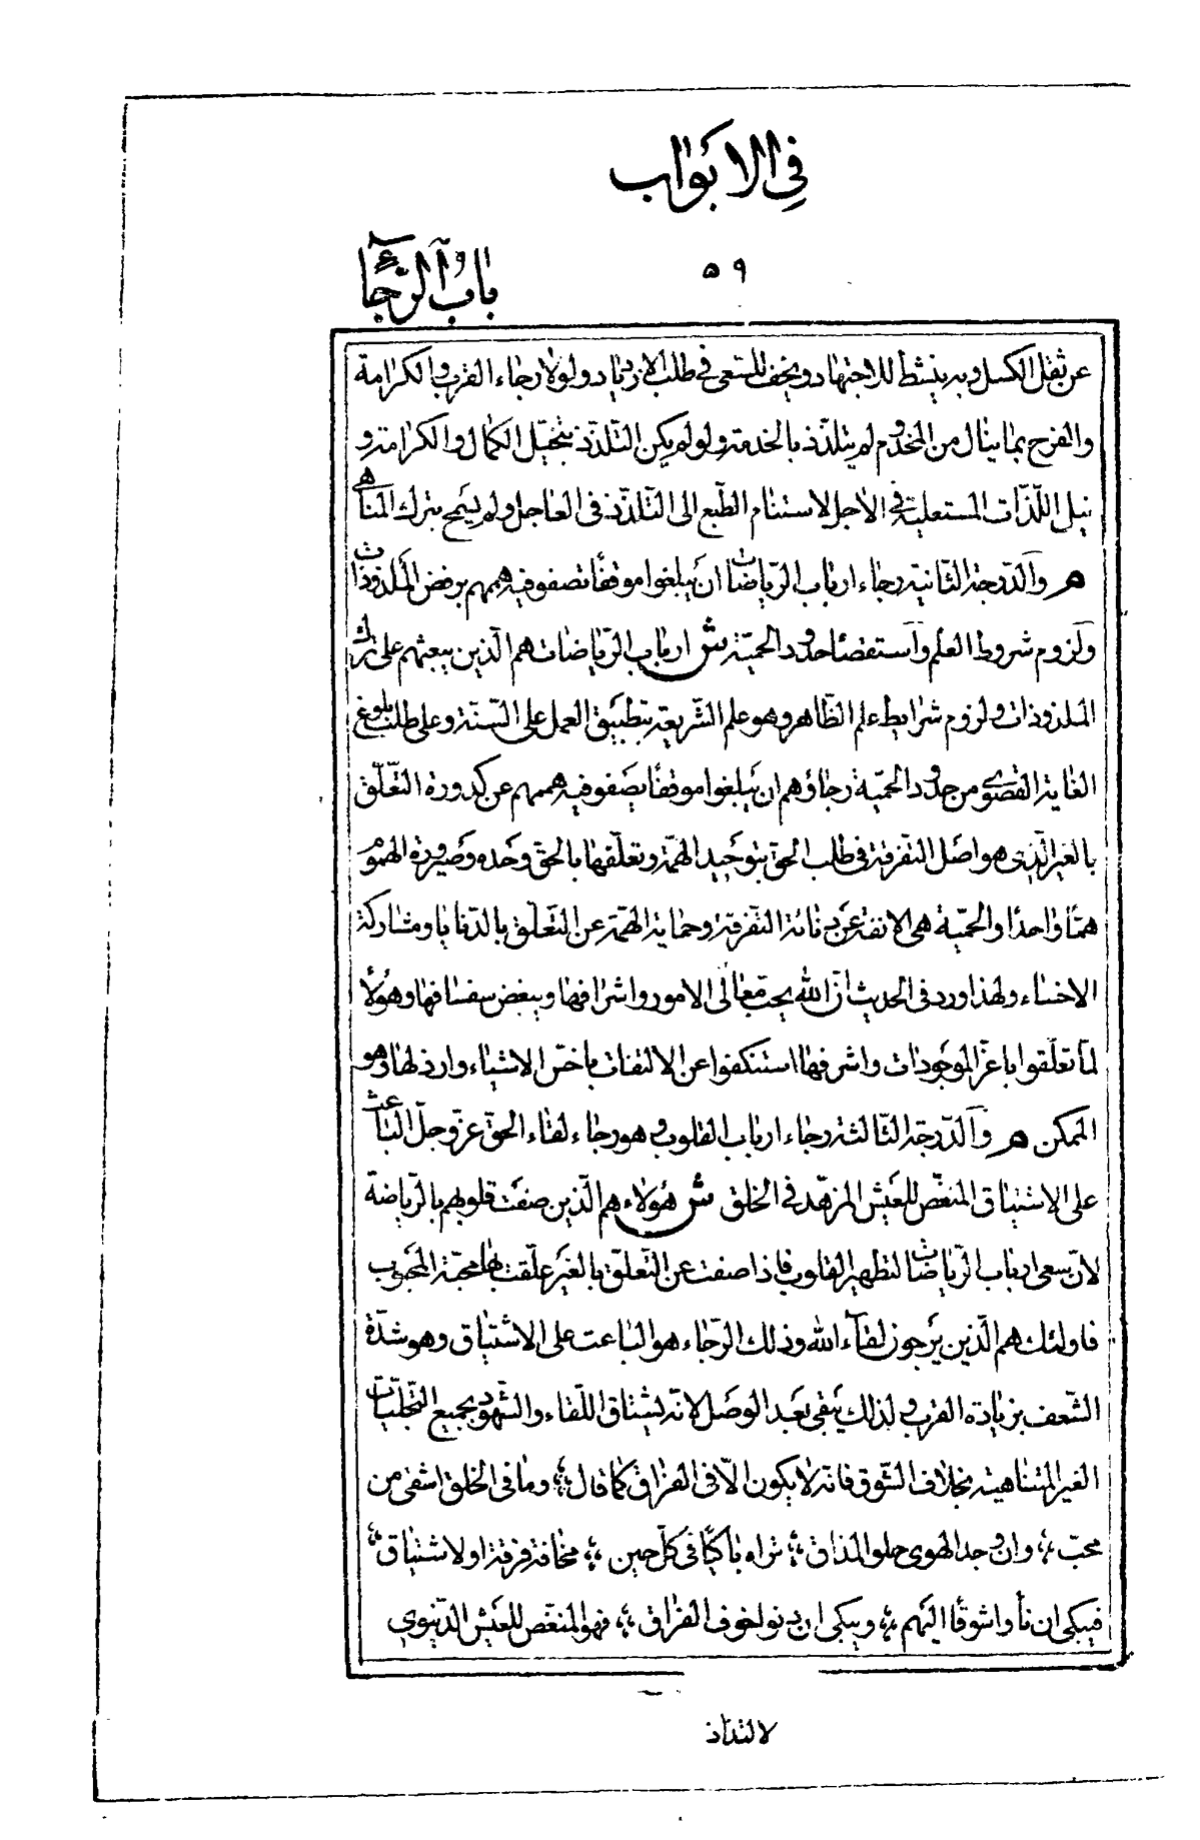 في الابواب
باب الرجاء
٥٩
عن ثقل الكسل وبه ينشط للاجتهاد ويخف للسعى فى طلب الازدياد ولولا رجاء القرب والكرامة
والفرح بما ينال من المخدوم لم يتلذّذ بالخدمة ولو لم يكن التلذّذ بتخيّل الكمال والكرامة و
نيل اللّذّات المستعلية فى الآجل لاستنام الطّبع الى التّلذّذ فى العاجل ولم يسمح بترك المناهى
م والدّرجة الثّانية رجاء ارباب الرّياضات ان يبلغوا موقفًا تصفو فيه هممهم برفض الملذوذات
ولزوم شروط العلم واستقصاء حدود الحميّة ش ارباب الرّياضات هم الّذين يبعثهم على ترك
الملذوذات ولزوم شرايط علم الظّاهر وهو علم الشّريعة بتطبيق العمل على السّنّة وعلى طلب بلوغ
الغاية القصوى من حدود الحميّة رجاؤهم ان يبلغوا موقفًا يصفو فيه هممهم عن كدورة التّعلّق
بالغير الّذى هو اصل التّفرقة فى طلب الحقّ بتوحيد الهمّة وتعلّقها بالحقّ وحده وصيرورة الهموم
همًّا واحدًا والحميّة هى الانفة عن دنائة التّفرقة وحماية الهمّة عن التّعلّق بالدّنايا ومشاركة
الاخساء ولهذا ورد فى الحديث انّ الله يحبّ معالى الامور واشرافها ويبغض سفسافها وهؤلاء
لمّا تعلّقوا باعزّ الموجودات واشرفها استنكفوا عن الالتفات باخسّ الاشياء وارذلها وهو
الممكن م والدّرجة الثّالثة رجاء ارباب القلوب وهو رجاء لقاء الحقّ عزّ وجلّ الباعث
على الاشتياق المنغّص للعيش المزهّد فى الخلق ش هؤلاء هم الّذين صفت قلوبهم بالرّياضة
لانّ سعى ارباب الرّياضات لتطهير القلوب فاذا صفت عن التّعلّق بالغير علّقت بها محبّة المحبوب
فاولئك هم الّذين يرجون لقاء الله وذلك الرّجاء هو الباعث على الاشتياق وهو شدّة
الشّعف بزيادة القرب ولذلك يبقى بعد الوصل لانّه يشتاق اللّقاء والشّهود بجميع التّجلّيات
الغير المتناهية بخلاف الشّوق فانّه لا يكون الّا فى الفراق كما قال ؛ وما فى الخلق اشقى من
محبّ ؛ وان وجد الهوى حلو المذاق ؛ تراه باكيًا فى كلّ حين ؛ مخافة فرقة او لاشتياق ؛
فيبكى ان نأوا شوقًا اليهم ؛ ويبكى ان دنوا لخوف الفراق ؛ فهو المنغّص للعيش الدّنيوى
لالتذاذ